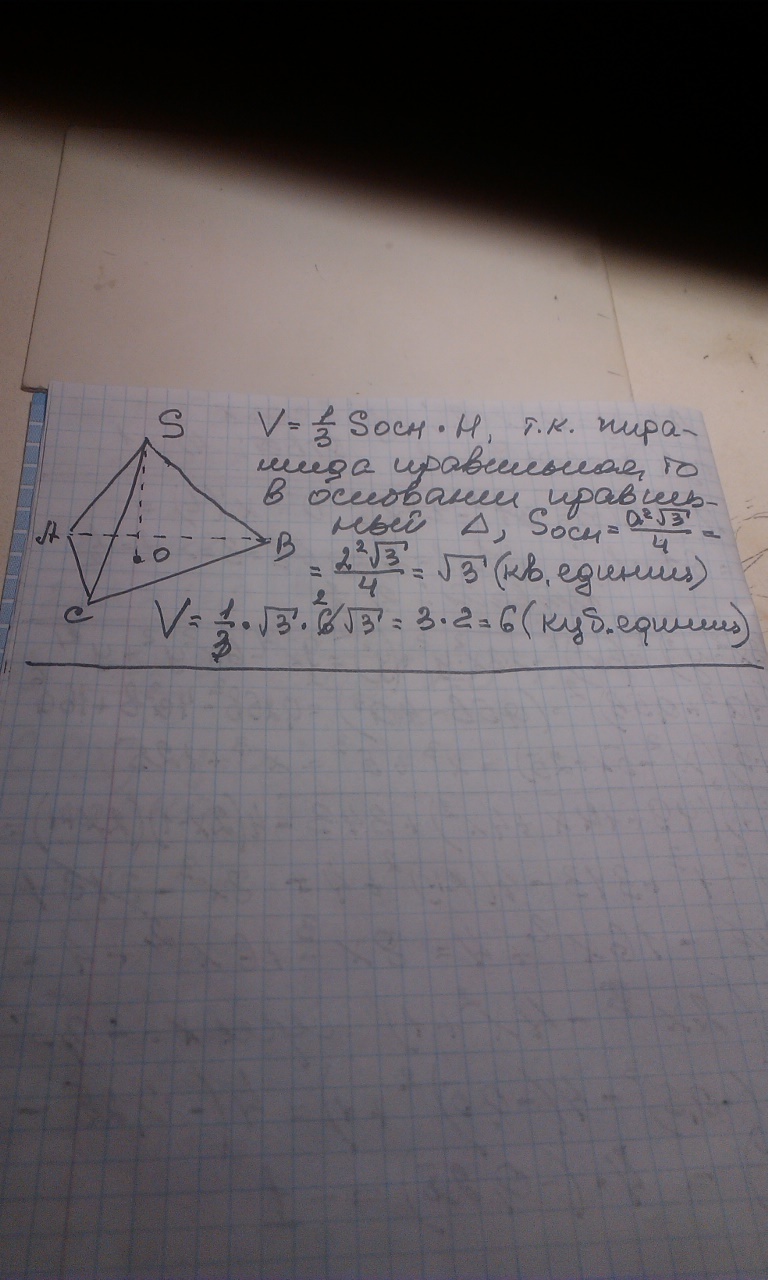 S
V = 1/3 Sосн · H, т.к. пира-
мида правильная, то
в основании правиль-
A
O
B
C
ный Δ, Sосн = a²√3/4 =
= 2²√3/4 = √3 (кв. единиц)
V = 1/3 · √3 · 6√3 2 = 3 · 2 = 6 (куб. единиц)